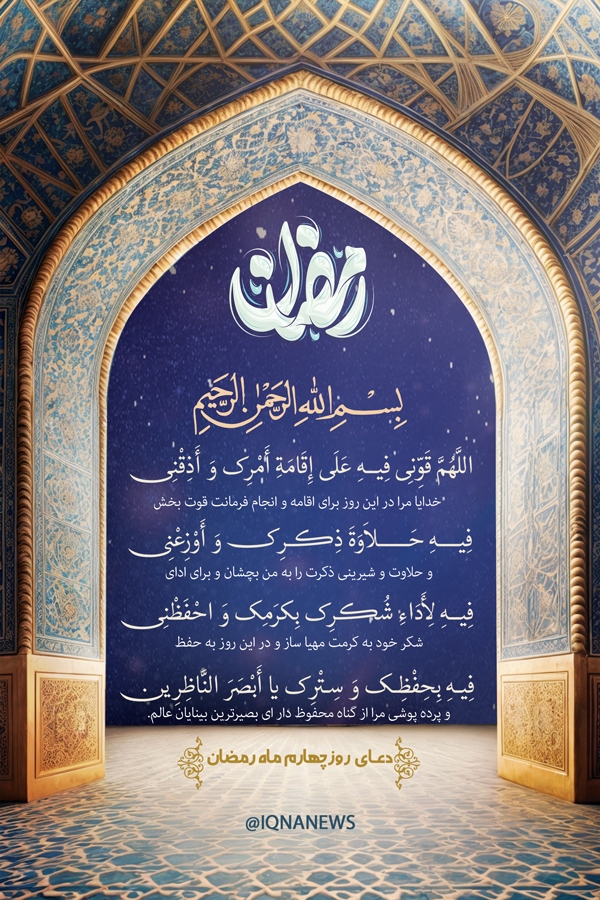 رمضان
بِسْمِ اللهِ الرَّحْمٰنِ الرَّحِيمِ
اللَّهُمَّ قَوِّنِي فِيهِ عَلَى إِقَامَةِ أَمْرِكَ وَ أَذِقْنِي
خدایا مرا در این روز برای اقامه و انجام فرمانت قوت بخش
فِيهِ حَلَاوَةَ ذِكْرِكَ وَ أَوْزِعْنِي
و حلاوت و شیرینی ذکرت را به من بچشان و برای ادای
فِيهِ لِأَدَاءِ شُكْرِكَ بِكَرَمِكَ وَ احْفَظْنِي
شکر خود به کرمت مهیا ساز و در این روز به حفظ
فِيهِ بِحِفْظِكَ وَ سِتْرِكَ يَا أَبْصَرَ النَّاظِرِينَ
و پرده پوشی مرا از گناه محفوظ دار ای بصیرترین بینایان عالم.
دعای روز چهارم ماه رمضان
@IQNANEWS